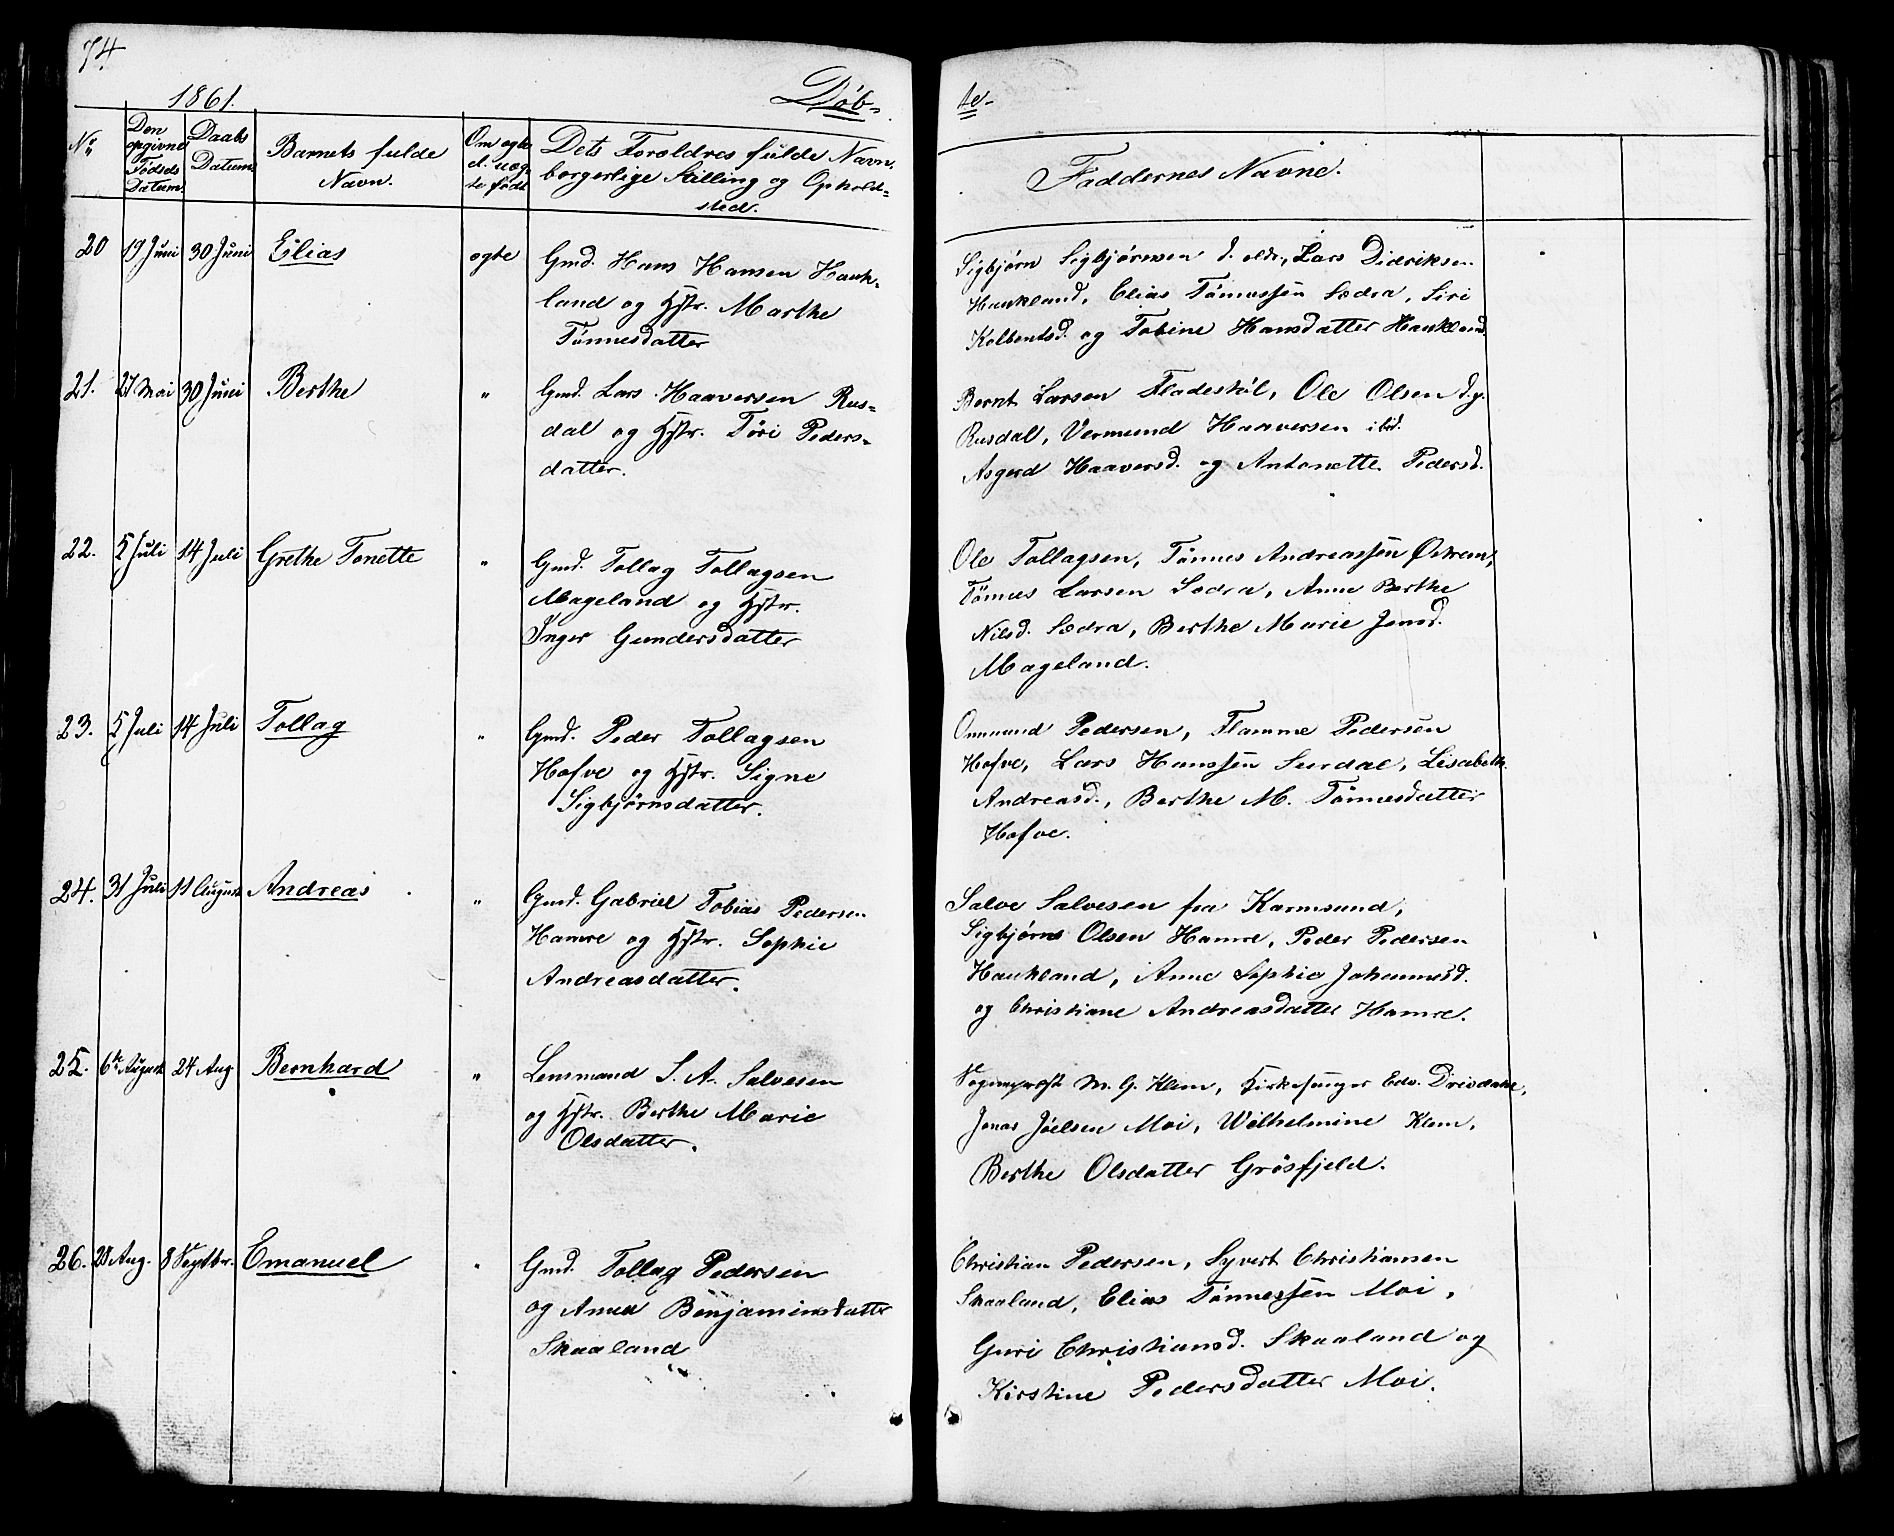 74
1861.
Døb-
te-
No
Den opgivne Fødsels Datum
Daabs Datum
Barnets fulde Navn.
Om ægte el. uægte født
Dets Forældres fulde Navn, borgerlige Stilling og Opholdssted.
Faddernes Navne.
20 19 Juni 30 Juni Elias ægte
Gmd. Hans Hansen Hauk-
land og Hstr. Marthe
Tønnesdatter
Sigbjørn Sigbjørnsen d. eldr., Lars Didriksen
Haukland, Elias Tönnessen Sædra, Siri
Kolbentsd. og Tobine Hansdatter Haukland
21. 27 Mai 30 Juni Berthe "
Gmd. Lars Haaversen Rus-
dal og Hstr. Töri Peders-
datter.
Bernt Larsen Fladestöl, Ole Olsen d.y.
Rusdal, Vermund Haaversen ibd.
Asgerd Haaversd. og Antonette Pedersd.
22. 5 Juli 14 Juli Grethe Tonette "
Gmd. Tollag Tollagsen
Mageland og Hstr.
Inger Gundersdatter
Ole Tollagsen, Tönnes Andreassen Østrem,
Tönnes Larsen Sædra, Anne Berthe
Nilsd. Sædra, Berthe Marie Jonsd.
Mageland.
23. 5 Juli 14 Juli Tollag "
Gmd. Peder Tollagsen
Hofve og Hstr. Signe
Sigbjørnsdatter.
Ommund Pedersen, Flamme Pedersen
Hofve, Lars Hanssen Surdal, Lisabeth
Andreasd., Berthe M. Tönnesdatter
Hofve.
24. 31 Juli 11 August Andreas "
Gmd. Gabriel Tobias Pedersen
Hamre og Hstr. Sophie
Andreasdatter.
Salve Salvesen fra Karmsund,
Sigbjørn Olsen Hamre, Peder Pedersen
Haukland, Anne Sophie Johannesd.
og Christiane Andreasdatter Hamre.
25. 6te August 24 Aug Bernhard "
Lensmand S. A. Salvesen
og Hstr. Berthe Marie
Olsdatter.
Sogneprest M. G. Klem, Kirkesanger Edv. Drivdahl,
Jonas Jöelsen Moi, Wilhelmine Klem,
Berthe Olsdatter Grösfjeld.
26. 28 Aug. 8 Septbr. Emanuel "
Gmd. Tollag Pedersen
og Anna Benjaminsdatter
Skaaland
Christian Pedersen, Syvert Christiansen
Skaaland, Elias Tönnessen Moi,
Guri Christiansd. Skaaland og
Kirstine Pedersdatter Moi.